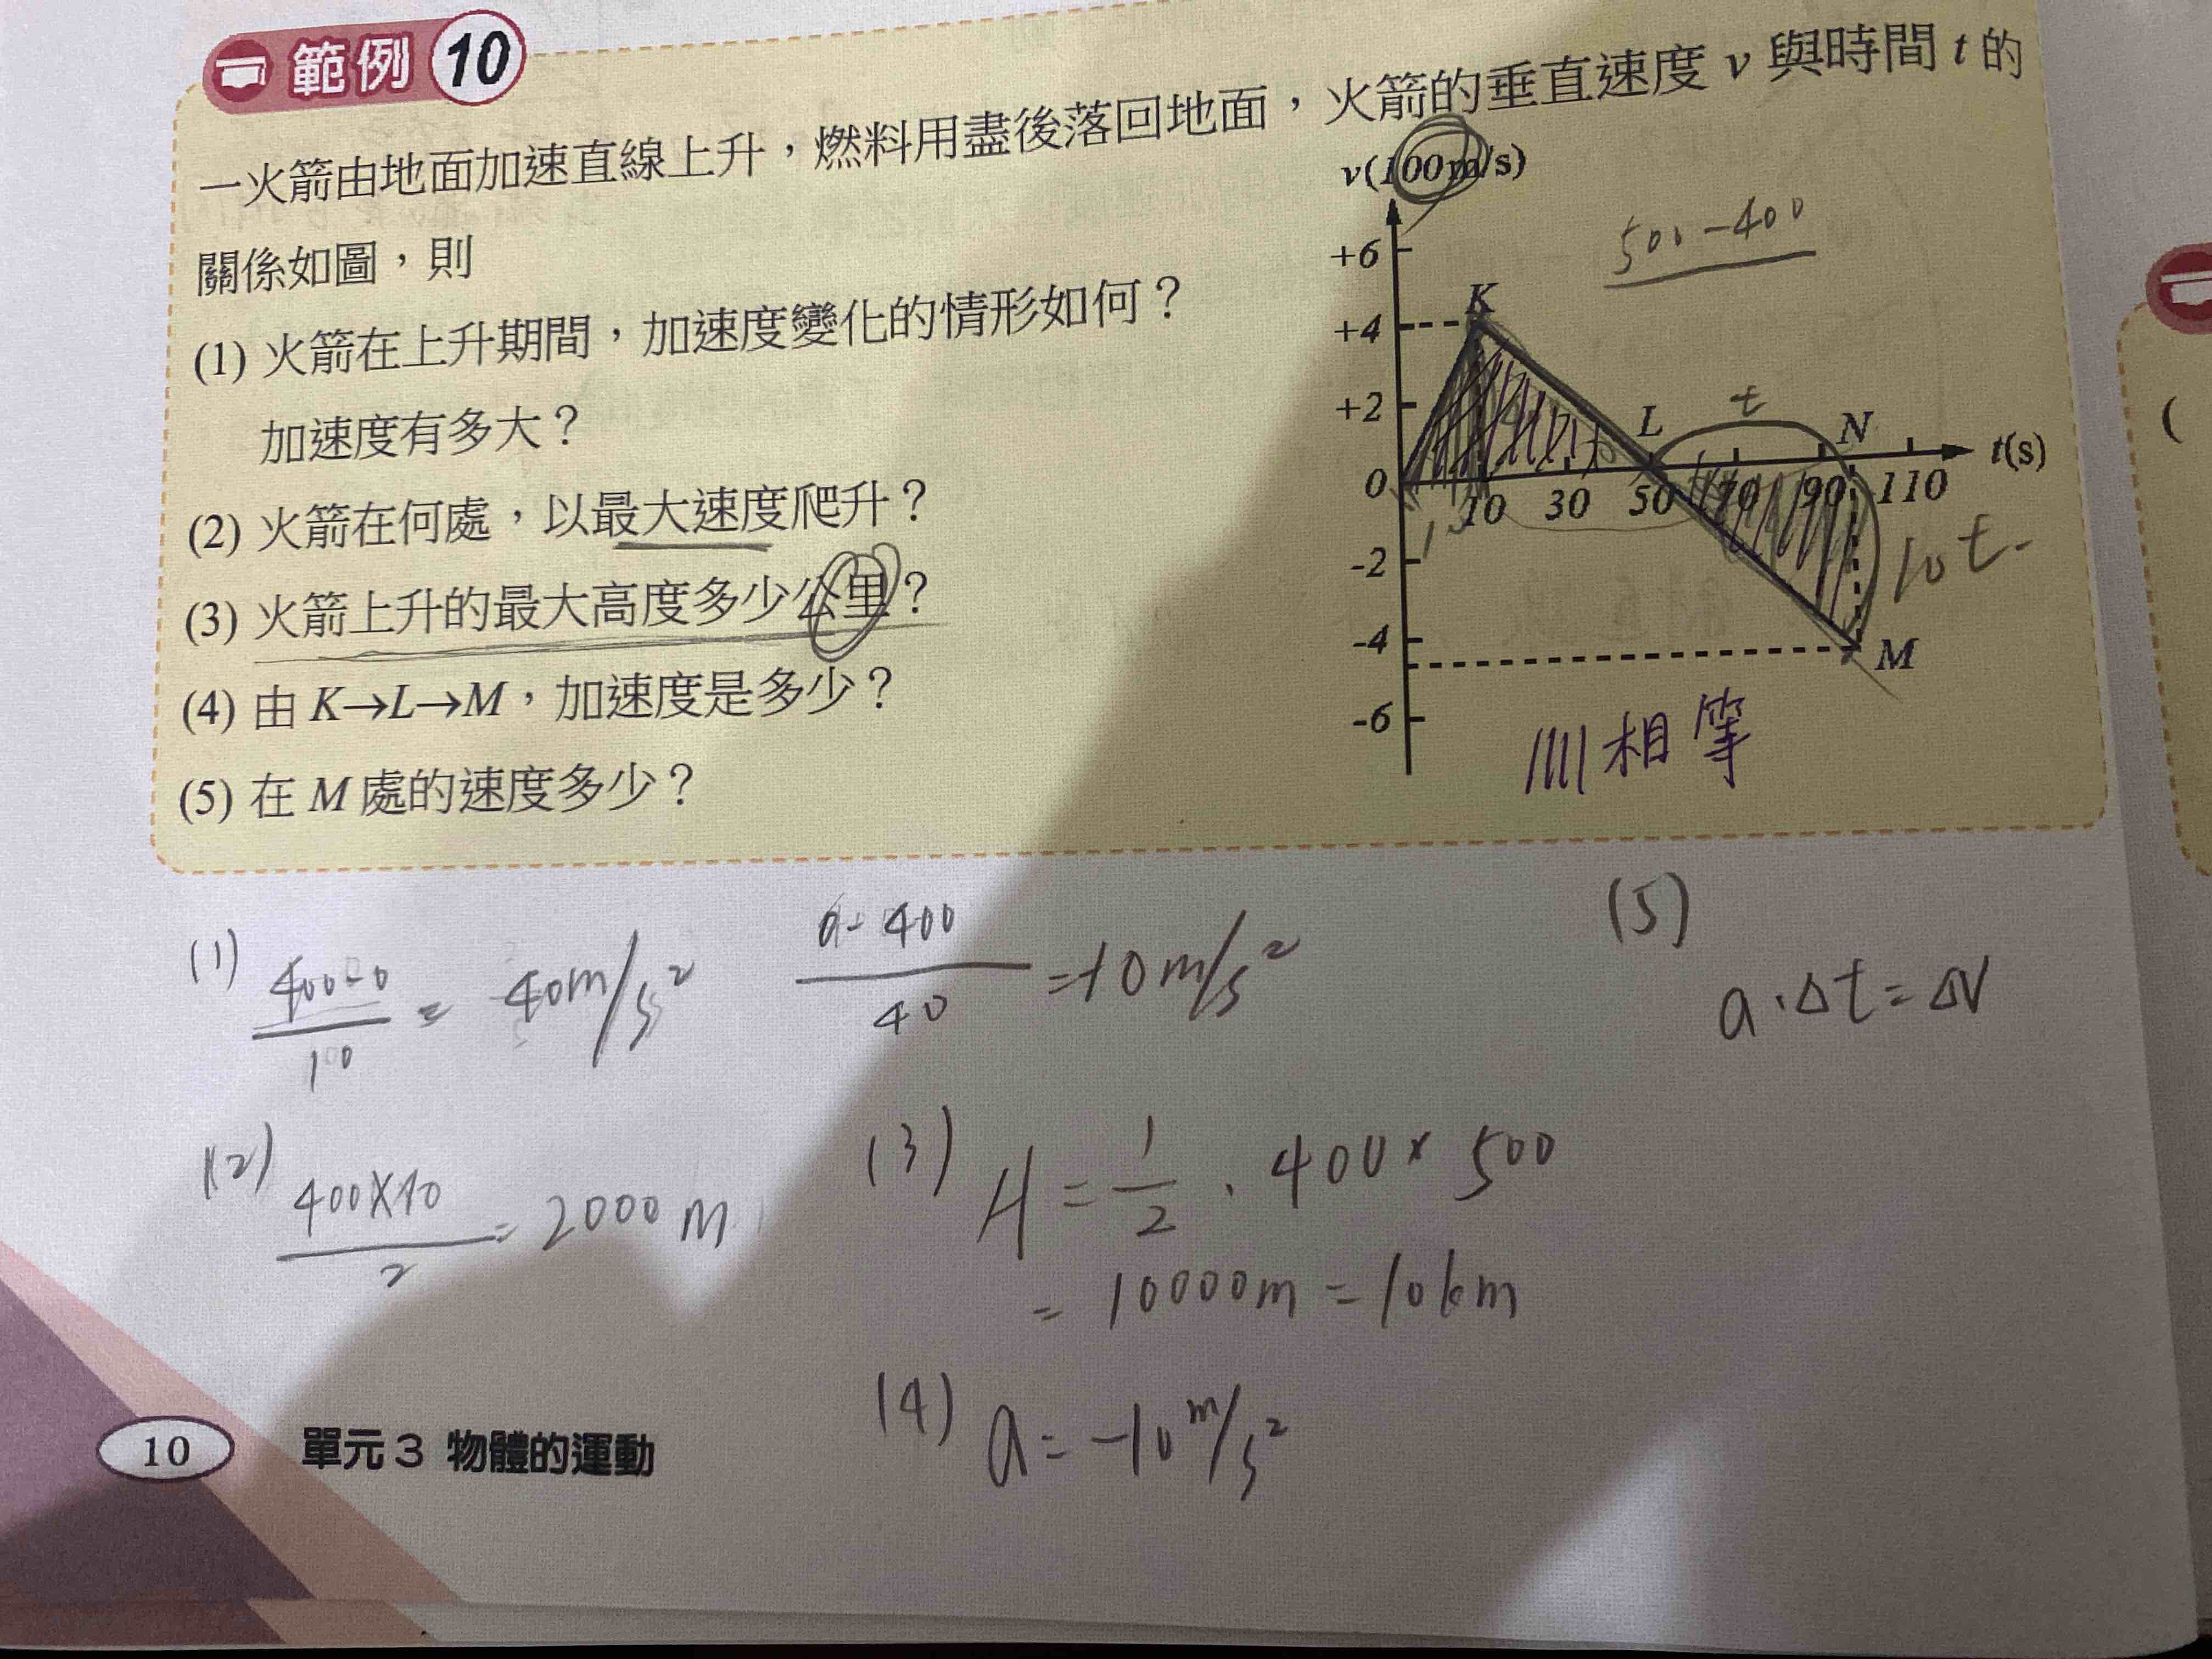 範例 10
一火箭由地面加速直線上升，燃料用盡後落回地面，火箭的垂直速度 v 與時間 t 的
關係如圖，則
(1) 火箭在上升期間，加速度變化的情形如何？
加速度有多大？
(2) 火箭在何處，以最大速度爬升？
(3) 火箭上升的最大高度多少公里？
(4) 由 K→L→M，加速度是多少？
(5) 在 M 處的速度多少？
v(100m/s)
500-400
+6
K
+4
+2
L
t
N
t(s)
0
10 30 50 70 90 110
-2
10t
-4
M
-6
相等
(1) 400-0 / 10 = 40m/s²
0-400 / 40 = -10m/s²
(5)
a·Δt=ΔV
(2) 400×10 / 2 = 2000m
(3) H = 1/2 · 400 × 500
= 10000m = 10km
(4) a = -10 m/s²
10 單元 3 物體的運動
(